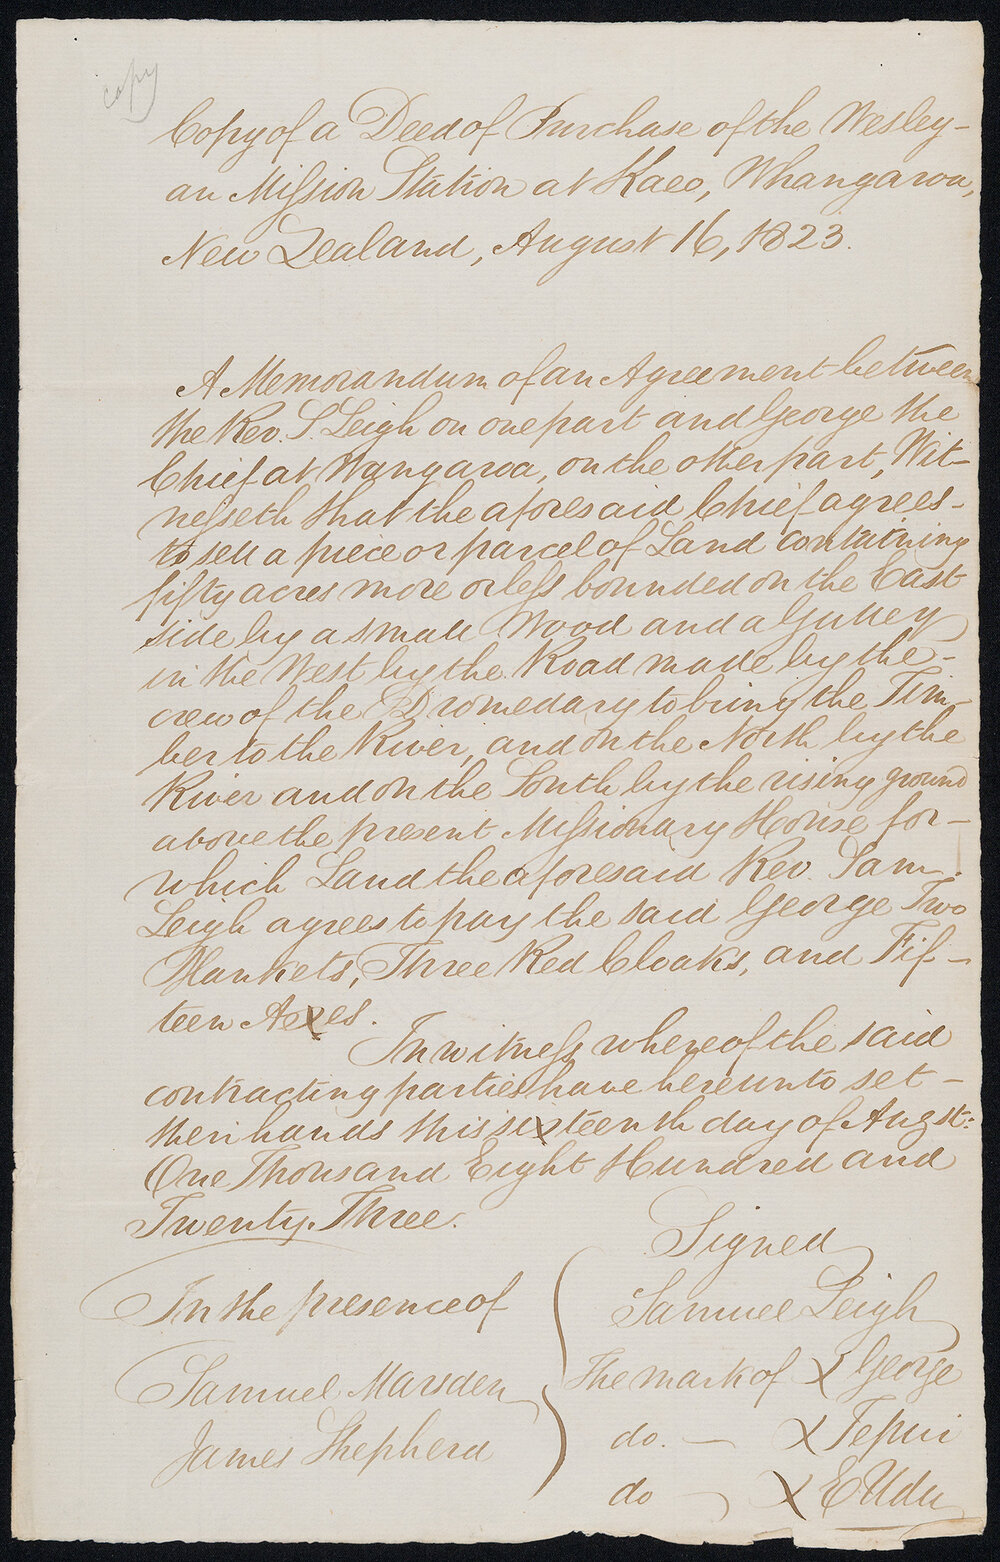 copy
Copy of a Deed of Purchase of the Wesley-
an Mission Station at Kaeo, Whangaroa,
New Zealand, August 16, 1823.
A Memorandum of an Agreement between
the Rev. S. Leigh on one part and George the
Chief at Wangaroa, on the other part, Wit-
nesseth that the aforesaid Chief agrees-
to sell a piece or parcel of Land containing
fifty acres more or less bounded on the East
side by a small Wood and a Gulley
in the West by the Road made by the-
crew of the Dromedary to bring the Tim-
ber to the River, and on the North by the
River and on the South by the rising ground
above the present Missionary House for-
which Land the aforesaid Rev. Sam.
Leigh agrees to pay the said George Two
Blankets, Three Red Cloaks, and Fif-
teen Axes.
In witness whereof the said
contracting parties have hereunto set-
their hands this sixteenth day of Augst:
One Thousand Eight Hundred and
Twenty. Three.
Signed
In the presence of
Samuel Leigh
The mark of X George
Samuel Marsden
do. - X Tepui
James Shepherd
do - X E Udu